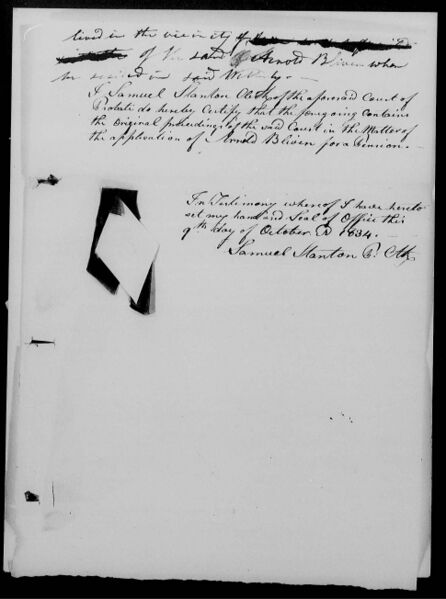 lived in the vicinity of
of the said Arnold Bliven when
he resided in said Westerly.
I Samuel Stanton Clerk of the aforesaid Court of
Probate do hereby Certify that the foregoing Contains
the Original proceedings of the said Court in the Matter of
the application of Arnold Bliven for a Pension.
In Testimony whereof I have hereto
set my hand and Seal of Office this
9th day of October AD 1834.
Samuel Stanton P. Clk